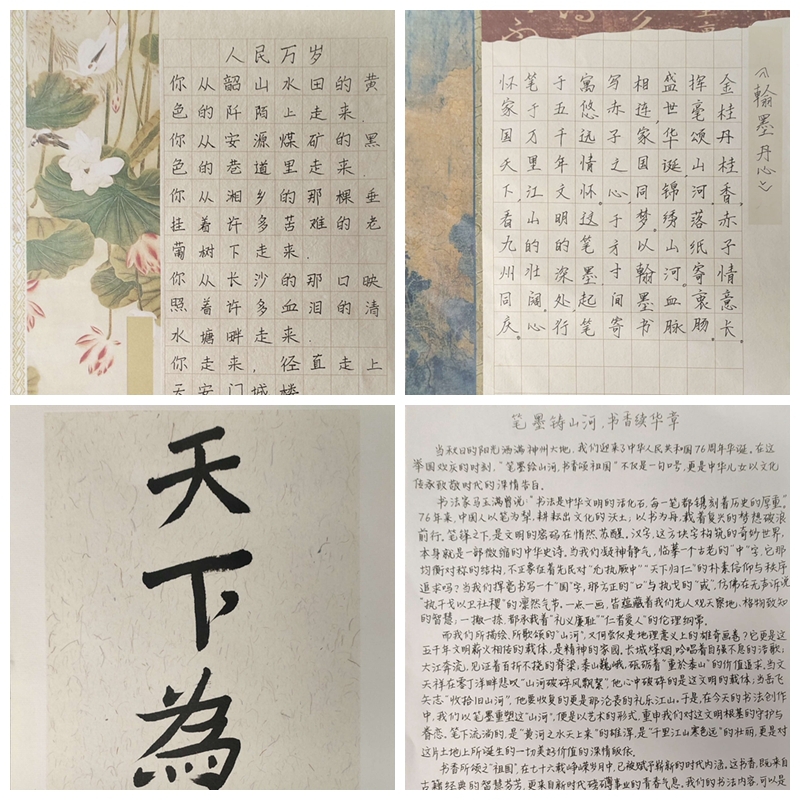 人民万岁
你从韶山水田的黄
色的阡陌上走来.
你从安源煤矿的黑
色的巷道里走来.
你从湘乡的那棵垂
挂着许多苦难的老
葡树下走来.
你从长沙的那口映
照着许多血泪的清
水塘畔走来.
你走来,径直走上
天安门城楼
《翰墨丹心》
金桂丹桂香,赤子情意长。
挥毫颂山河,落纸寄衷肠。
盛世华诞,锦绣山河血脉
相连,家国同梦。以翰墨书
写赤子之心,于方寸间寄
寓悠远情怀。这笔墨起笔
于五千年文明的深处行
笔于万里江山的壮阔。心
怀家国天下,看九州同庆。
天
下
為
笔墨铸山河,书香续华章
当秋日的阳光洒满神州大地,我们迎来了中华人民共和国76周年华诞。在这
举国欢庆的时刻,“笔墨绘山河,书香颂祖国”不仅是一句口号,更是中华儿女以文化
传承致敬时代的深情告白。
书法家马玉满曾说:“书法是中华文明的活化石,每一笔都镌刻着历史的厚重。”
76年来,中国人以笔为犁,耕耘出文化的沃土;以书为舟,载着复兴的梦想破浪
前行。笔锋之下,是文明的密码在悄然苏醒。汉字,这方块字构筑的奇妙世界,
本身就是一部微缩的中华史诗。当我们凝神静气,临摹一个古老的“中”字,它那
均衡对称的结构,不正象征着先民对“允执厥中”“天下归仁”的朴素信仰与秩序
追求吗?当我们挥毫书写一个“国”字,那方正的“口”与执戈的“或”,仿佛在无声诉说
“执干戈以卫社稷”的凛然气节。一点一画,皆蕴藏着我们先人观天察地、格物致知
的智慧;一撇一捺,都承载着“礼义廉耻”“仁者爱人”的伦理纲常。
而我们所描绘、所歌颂的“山河”,又何尝仅是地理意义上的雄奇画卷?它更是这
五千年文明薪火相传的载体,是精神的家园。长城烽烟,吟唱着自强不息的浩歌;
大江奔流,见证着百折不挠的脊梁;泰山巍峨,砥砺着“重於泰山”的价值追求。当文
天祥在零丁洋畔悲叹“山河破碎风飘絮”,他心中破碎的是这文明的载体;当岳飞
矢志“收拾旧山河”,他要收复的更是那沦丧的礼乐江山。于是,在今天的书法创作
中,我们以笔墨重塑这“山河”,便是以艺术的形式,重申我们对这文明根基的守护与
眷恋。笔下流淌的,是“黄河之水天上来”的雄浑,是“千里江山寒色远”的壮丽,更是对
这片土地上所诞生的一切美好价值的深情皈依。
书香所颂之“祖国”,在七十六载峥嵘岁月中,已被赋予崭新的时代内涵。这书香,既来自
古籍经典的智慧芬芳,更来自新时代磅礴事业的青春气息。我们的书法内容,可以是